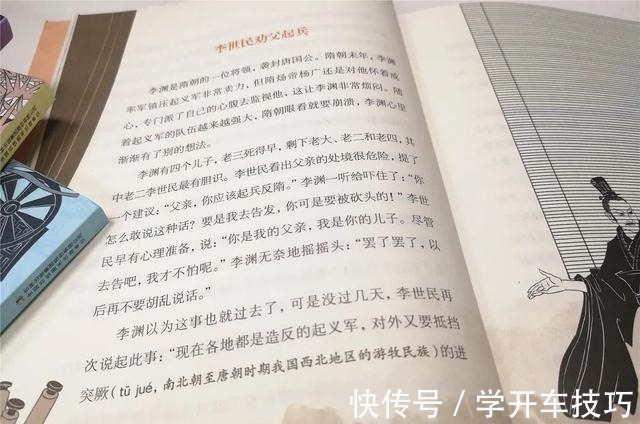 李世民劝父起兵
李渊是隋朝的一位将领，袭封唐国公。隋朝末年，李渊
率军镇压起义军非常卖力，但隋炀帝杨广还是对他怀着戒
心，专门派了自己的心腹去监视他，这让李渊非常烦闷。随
着起义军的队伍越来越强大，隋朝眼看就要崩溃，李渊心里
渐渐有了别的想法。
李渊有四个儿子，老三死得早，剩下老大、老二和老四，其
中老二李世民最有胆识。李世民看出父亲的处境很危险，提了
一个建议：“父亲，你应该起兵反隋。”李渊一听给吓住了：“你
怎么敢说这种话？要是我去告发，你可是要被砍头的！”李世
民早有心理准备，说：“你是我的父亲，我是你的儿子。尽管
去告吧，我才不怕呢。”李渊无奈地摇摇头：“罢了罢了，以
后再不要胡乱说话。”
李渊以为这事也就过去了，可是没过几天，李世民再
次说起此事：“现在各地都是造反的起义军，对外又要抵挡
突厥（tū jué，南北朝至唐朝时期我国西北地区的游牧民族）的进
快传号 / 学开车技巧